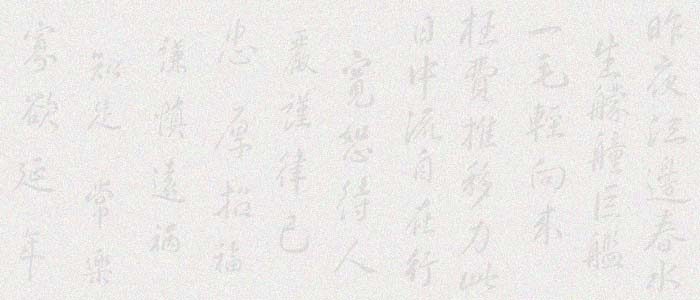 昨夜江邊春水
生艨艟巨艦
一毛輕向來
枉費推移力此
日中流自在行
寬恕待人
嚴謹律己
忠厚招福
謙慎遠禍
知足常樂
寡欲延年